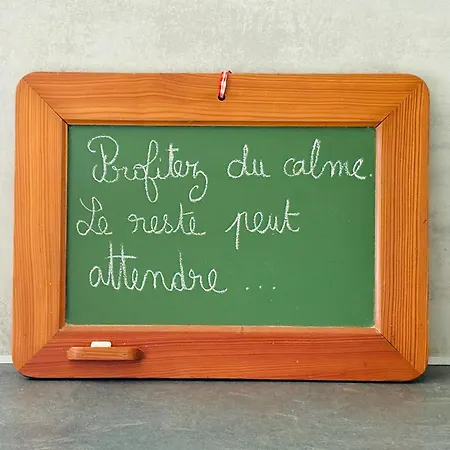 Profitez du calme.
Le reste peut
attendre ...